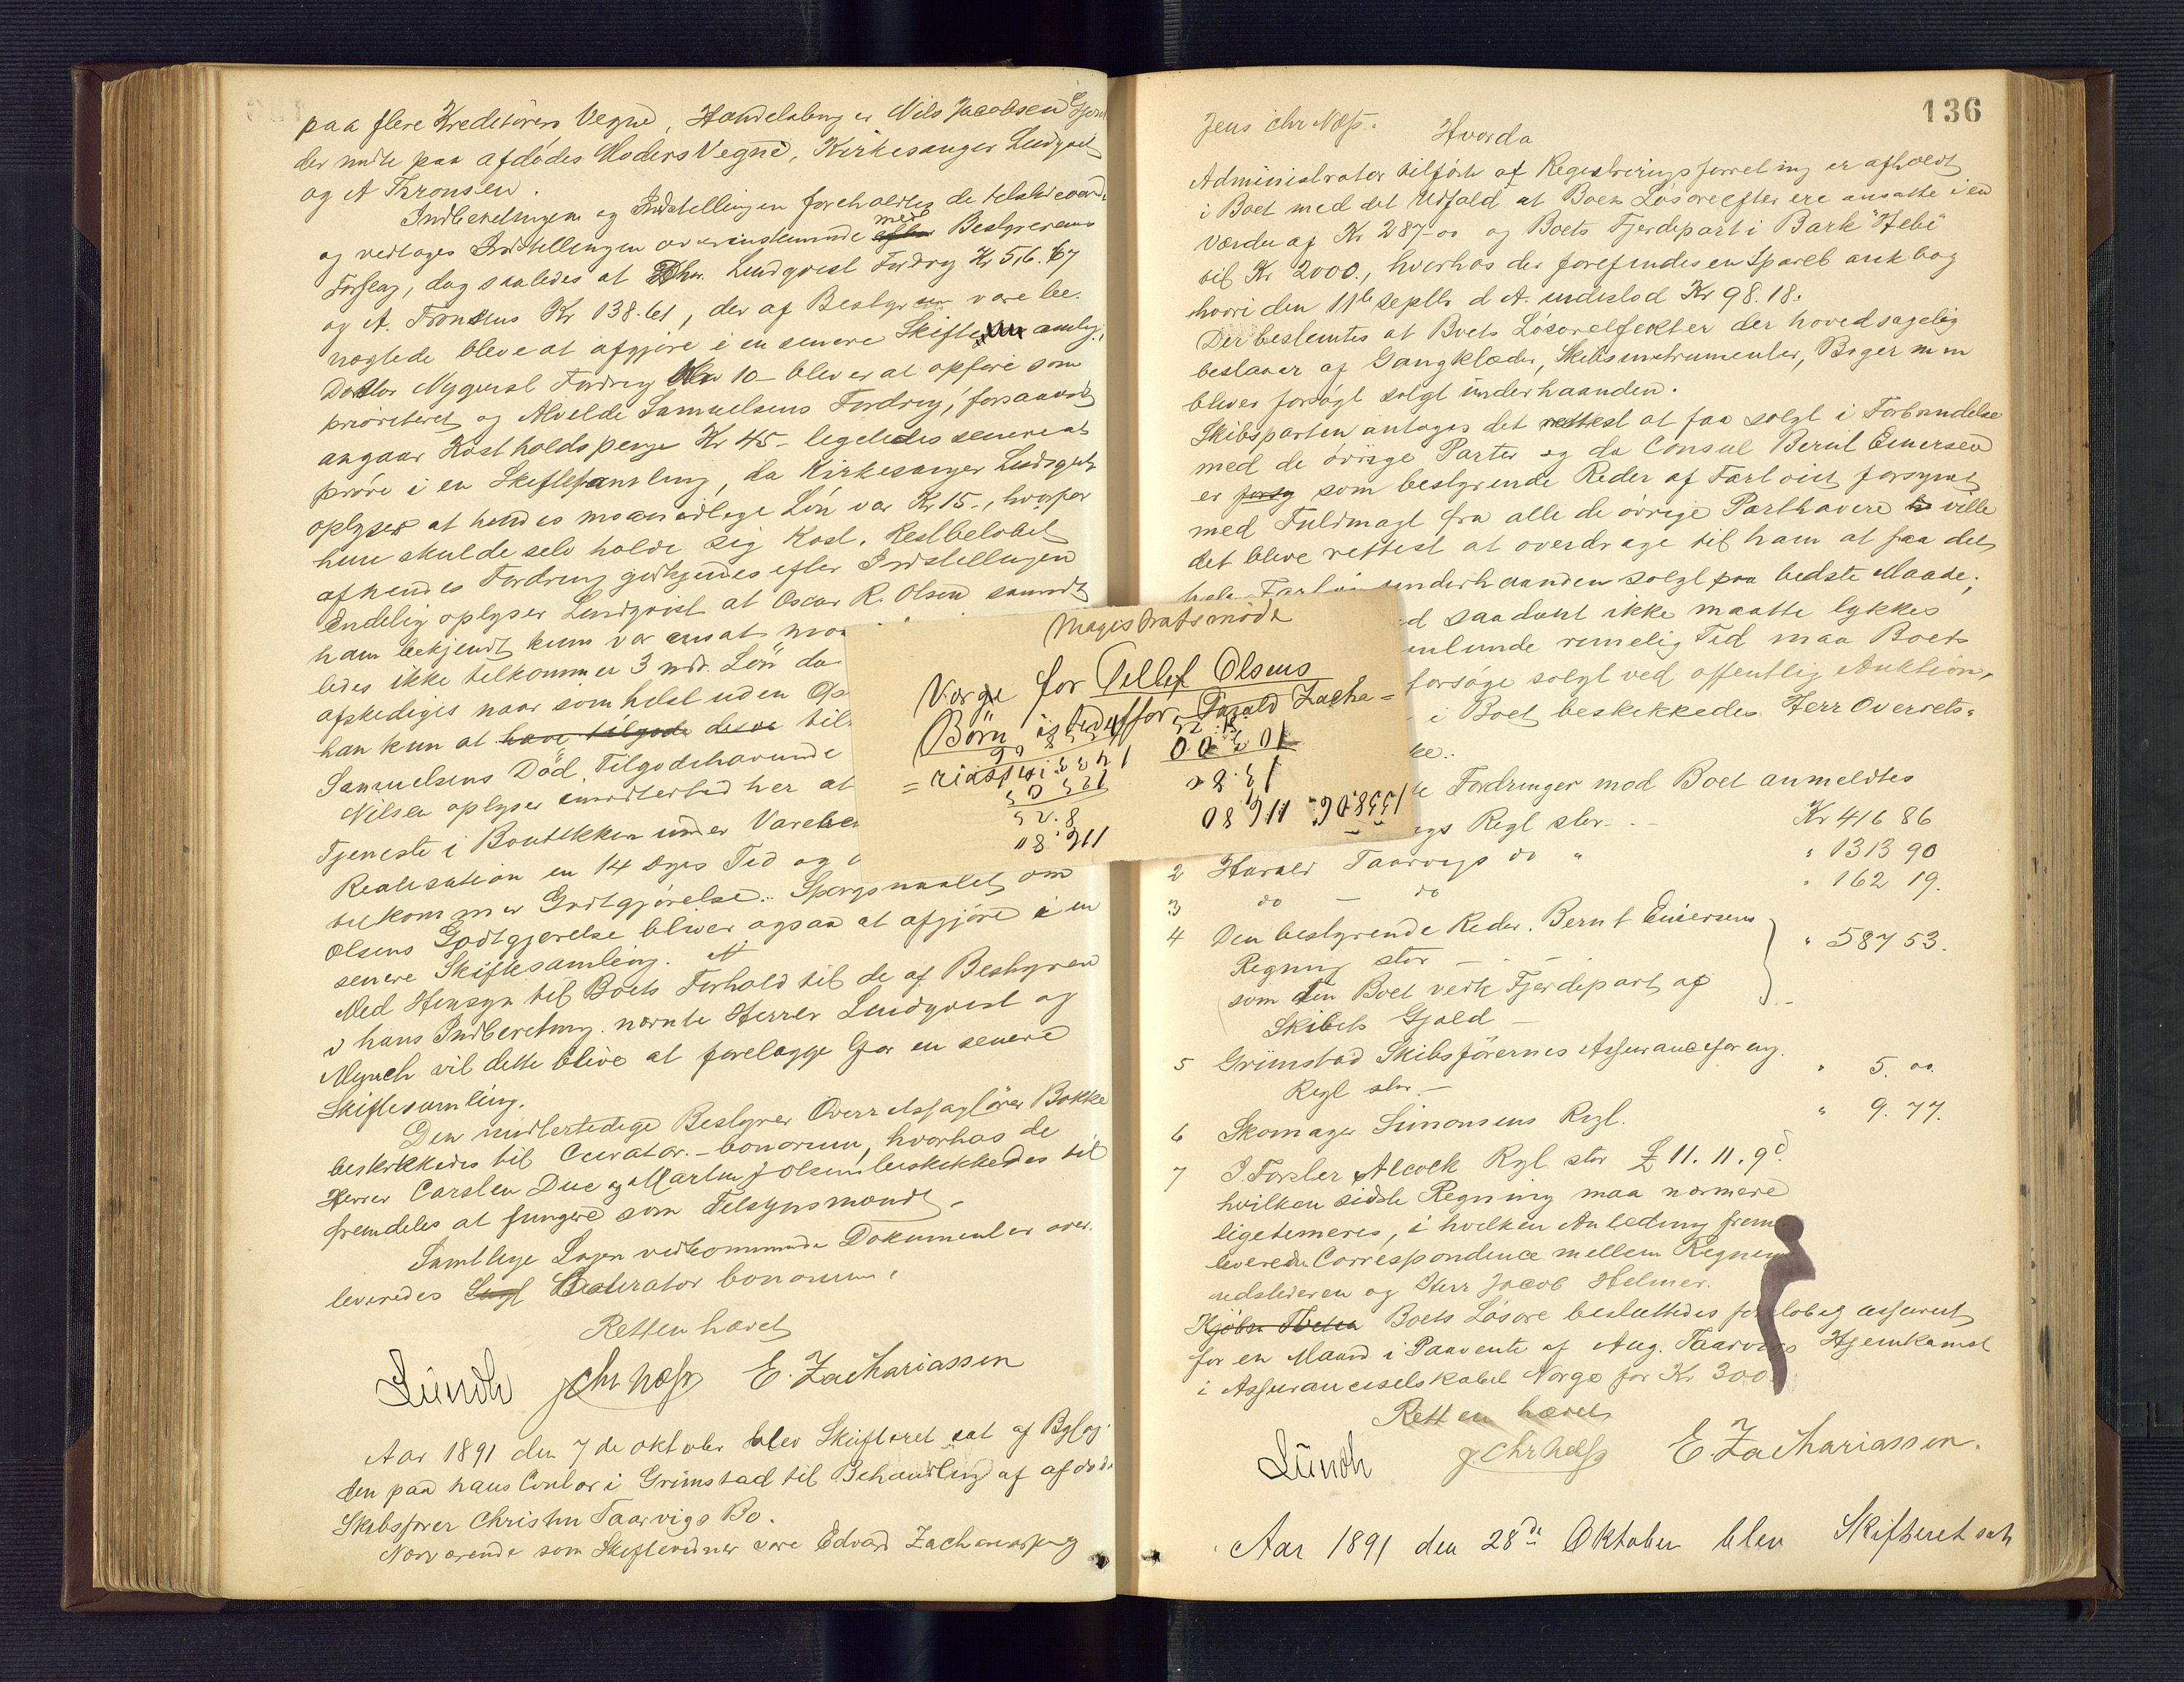 paa flere Kreditorers Vegne, Handelsborger Nils Jacobsen
der mödte paa afdödes Moders Vegne, Kirkesanger Lindqvist
og A Thronsen.
Indberetningen og Indstillingen foreholdtes de
og vedtages Indstillingen overensstemmende efter med Bestyrerens
Forslag, dog saaledes at Lindqvist Fordring Kr 516.67
og A. Tronsens Kr 138.61, der af Bestyreren vare be-
nægtede bleve at afgjøre i en senere Skiftesamling,
Doktor Nyqvist Fordring 10 - blev er at opføre som
prioriteret og Alvilde Samuelsens Fordring, forsaavidt
angaar Kostholdspenge Kr 45 - ligeledes senere at
pröve i en Skiftesamling, da Kirkesanger Lindqvist
oplyser at hendes maanedlige Lön var Kr 15 -, hvorfor
hun skulde selv holde sig Kost. Restbelöbet
af hendes Fordring godkjendes efter Indstillingen
Endelig oplyser Lindqvist at Oscar R. Olsen saavidt
ham bekjendt kun var ansat
ledes ikke tilkommer 3 mdr. Lön da
afskediges naar somhelst uden Op
han kun at have tilgode
Samuelsens Död. Tilgodehavende
Nilsen oplyser imidlertid her at
Tjeneste i Boutikken under Vare
Realisation en 14 Dages Tid og
tilkommer Godtgjörelse. Spörgsmaalet om
Olsens Godtgjørelse bliver ogsaa at afgjöre i en
senere Skiftesamling.
Med Hensyn til Boets Forhold til de af Bestyreren
i hans Indberetning nævnte Herrer Lindqvist og
Munch vil dette blive at forelægge for en senere
Skiftesamling.
Den midlertidige Bestyrer Overretssagförer Bokke
beskikkedes til Curator - bonorum, hvorhos de
Herrer Carsten Due og Martin J Olsen beskikkedes til
fremdeles at fungere som Tilsynsmænd -
Samtlige Sagen vedkommende Dokumenter over-
leveredes Curator bonorum.
Retten hævet
Lündh J Chr Næss E. Zachariassen
Aar 1891 den 7de oktober blev Skifteret sat af Byfog-
den paa hans Contor i Grimstad til Behandling af afdöde
Skibsfører Christen Taarvigs Bo.
Nærværende som Skiftevidner vare Edvard Zachariassen og
136
Jens Chr Næss. Hvorda
Administrator tilförte at Registreringsforretning er afholdt
i Boet med det Udfald at Boets Lösöreefter ere ansatte i en
Værdi af Kr 287-00 og Boets Fjerdepart i Bark "Hebe"
til Kr 2000., hvorhos der forefindes en Sparebankbog
hvori den 11te septbr d A. indestod Kr 98.18.
Der bestemtes at Boets Lösöreeffekter der hovedsagelig
bestaaer af Gangklæder, Skibsinstrumenter, Böger m m
bliver forsögt solgt underhaanden.
Skibsparten antages det rettest at faa solgt i Forbindelse
med de övrige Parter og da Consul Bernt Einersen
er som bestyrende Reder af Fartöiet forsynet
med Fuldmagt fra alle de övrige Parthavere ville
det blive rettest at overdrage til ham at faa det
hele Fartöi underhaanden solgt paa bedste Maade;
saadant ikke maatte lykkes
rimelig Tid maa Boets
forsöge solgt ved offentlig Auktion,
i Boet beskikkedes Herr Overrets-
Fordringer mod Boet anmeldtes
Regl stor - Kr 416 86
2 Harald Taarvigs do " " 1313 90
3 do - do " 162 19.
4 Den bestyrende Reder. Bernt Einersens
Regning stor - " 587 53.
som den Boet vedk Fjerdepart af
Skibets Gjæld -
5 Grimstad Skibsförernes Assuranceforeng.
Regl stor - " 5. 00
6 Skomager Simonsens Rgl. " 9. 77.
7 J. Forster Alcock Rgl stor £ 11. 11. 9d.
hvilken sidste Regning maa nærmere
i hvilken Anledning frem-
leveredes Correspondence mellem Regnings
udstederen og Herr Jacob Helmer.
Boets Lösöre besluttedes foreløbig assureret
for en Maaned i Paavente af Aug. Taarvigs Hjemkomst
i Assuranceselskabet Norge for Kr 300.
Retten hævet
Lündh J. Chr Næss E. Zachariassen.
Aar 1891 den 28de Oktober blev Skifteret sat
Magistratsmöde
Værge for Tellef Olsens
Börn istedetfor Zacha=
=riassen
1338.06 116 80
116.80